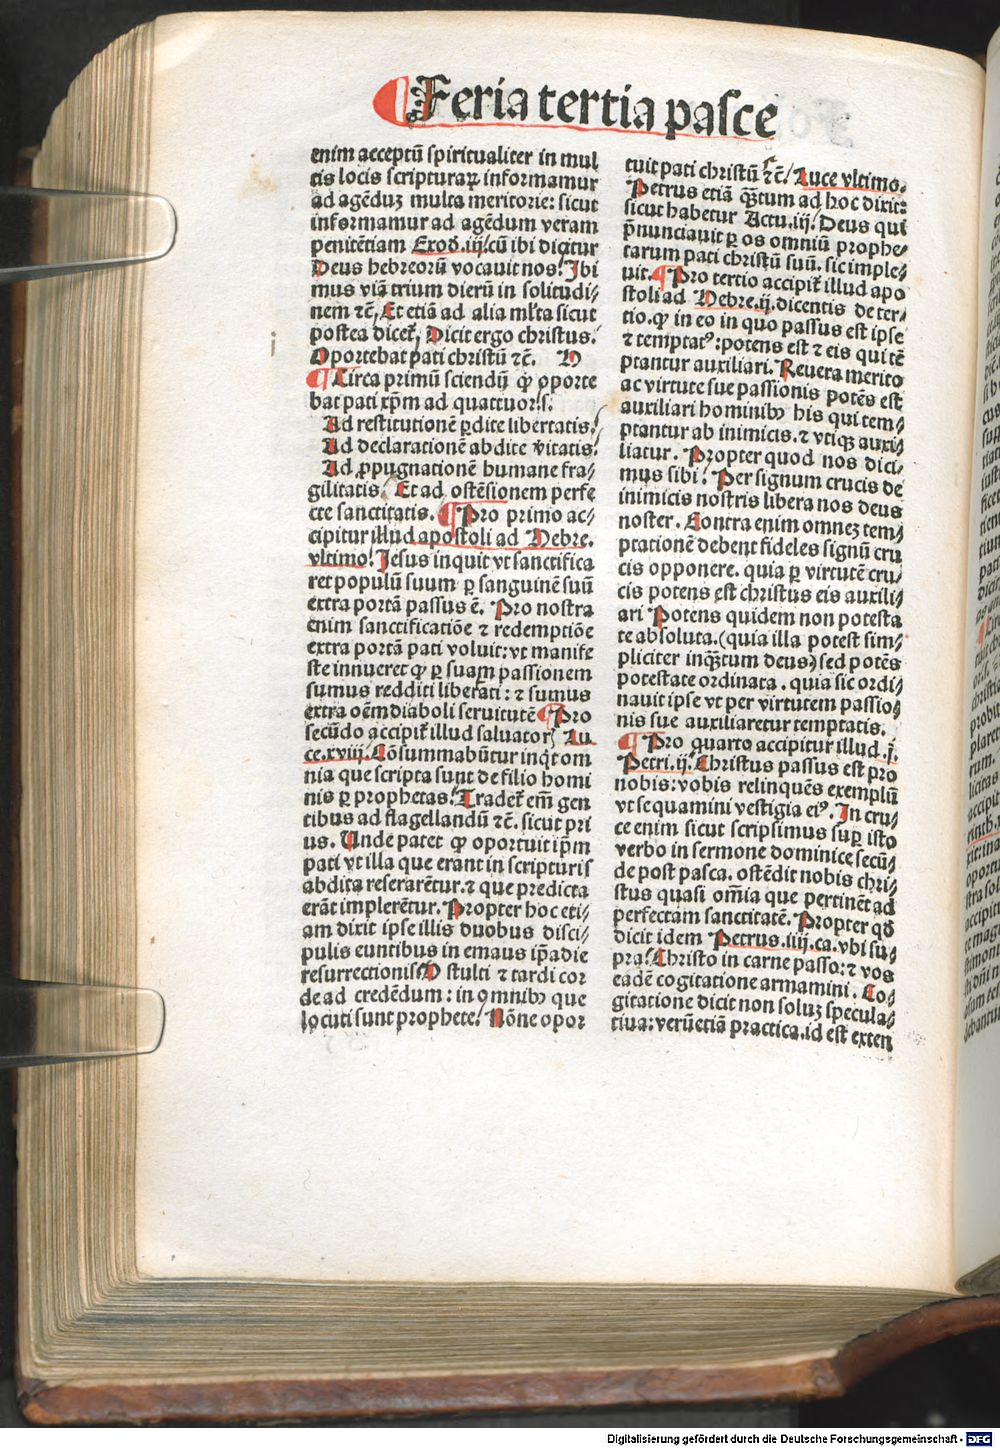 Feria tertia pasce
enim acceptū spiritualiter in mul
tis locis scripturaꝝ informamur
ad agēduꝫ multa meritorie: sicut
informamur ad agēdum veram
penitētiam Exod.iij. cū ibi dicitur
Deus hebreorū vocauit nos. Ibi
mus viā trium dierū in solitudi⸗
nem ⁊c̄. Et etiā ad alia mlta sicut
postea dicet̄. Dicit ergo christus.
Oportebat pati christū ⁊c̄. D
¶ Circa primū sciendū ꝙ oporte
bat pati xp̄m ad quattuor.s.
Ad restitutionē ꝑdite libertatis.
Ad declarationē abdite v̄itatis.
Ad ꝓpugnationē humane fra⸗
gilitatis. Et ad ostēsionem perfe
cte sanctitatis. ¶ Pro primo ac⸗
cipitur illud apostoli ad Hebre.
vltimo. Jesus inquit vt sanctifica
ret populū suum ꝑ sanguinē suū
extra portā passus ē. Pro nostra
enim sanctificatiōe ⁊ redemptiōe
extra portā pati voluit: vt manife
ste innueret ꝙ ꝑ suam passionem
sumus redditi liberati: ⁊ sumus
extra oēm diaboli seruitutē ¶ Pro
secūdo accipit̄ illud saluator̄ Lu
ce.xviij. Cōsummabūtur inq̇t om
nia que scripta sunt de filio homi
nis ꝑ prophetas. Tradet̄ em̄ gen
tibus ad flagellandū ⁊c̄. sicut pri
us. Unde patet ꝙ oportuit ip̄m
pati vt illa que erant in scripturis
abdita reserarētur.⁊ que predicta
erāt implerētur. Propter hoc eti⸗
am dixit ipse illis duobus disci⸗
pulis euntibus in emaus ip̄a die
resurrectionis. O stulti ⁊ tardi cor
de ad credēdum: in omnibꝰ que
locuti sunt prophete. Nōne opor
tuit pati christū ⁊c̄. Luce vltimo.
Petrus etiā q̄ꝫtum ad hoc dixit:
sicut habetur Actu.iij. Deus qui
p̄nunciauit ꝑ os omniū prophe⸗
tarum pati christū suū. sic imple⸗
uit. ¶ Pro tertio accipit̄ illud apo
stoli ad Hebre.ij. dicentis de ter⸗
tio.ꝙ in eo in quo passus est ipse
⁊ temptatꝰ: potens est ⁊ eis qui tē
ptantur auxiliari. Reuera merito
ac virtute sue passionis potēs est
auxiliari hominibꝰ his qui tem⸗
ptantur ab inimicis.⁊ vtiqꝫ auxi⸗
liatur. Propter quod nos dici⸗
mus sibi. Per signum crucis de
inimicis nostris libera nos deus
noster. Contra enim omnez tem⸗
ptationē debent fideles signū cru
cis opponere. quia ꝑ virtutē cru⸗
cis potens est christus eis auxili⸗
ari Potens quidem non potesta
te absoluta.(quia illa potest sim⸗
pliciter inq̄ꝫtum deus) sed potēs
potestate ordinata. quia sic ordi⸗
nauit ipse vt per virtutem passio⸗
nis sue auxiliaretur temptatis.
¶ Pro quarto accipitur illud.j.
Petri.ij. Christus passus est pro
nobis: vobis relinquēs exemplū
vt sequamini vestigia eiꝰ. In cru⸗
ce enim sicut scripsimus suꝑ isto
verbo in sermone dominice secū⸗
de post pasca. ostēdit nobis chri⸗
stus quasi om̄ia que pertinēt ad
perfectam sanctitatē. Propter qd̄
dicit idem Petrus.iiij.ca. vbi su⸗
pra. Christo in carne passo: ⁊ vos
eadē cogitatione armamini. Co⸗
gitatione dicit non soluꝫ specula⸗
tiua: verūetiā practica.id est exten
Digitalisierung gefördert durch die Deutsche Forschungsgemeinschaft - DFG